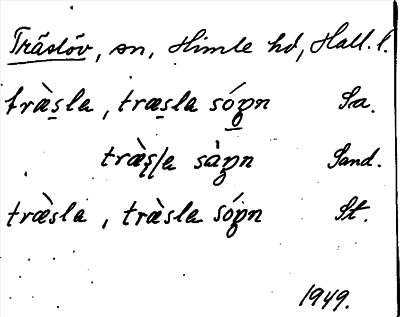 Träslöv, sn, Himle hd, Hall. l.
træ̀s̠la, træs̠la só̠pn Sa.
træ̀s̠la sàpn Sand.
træ̀sla, træ̀sla sópn St.
1949.